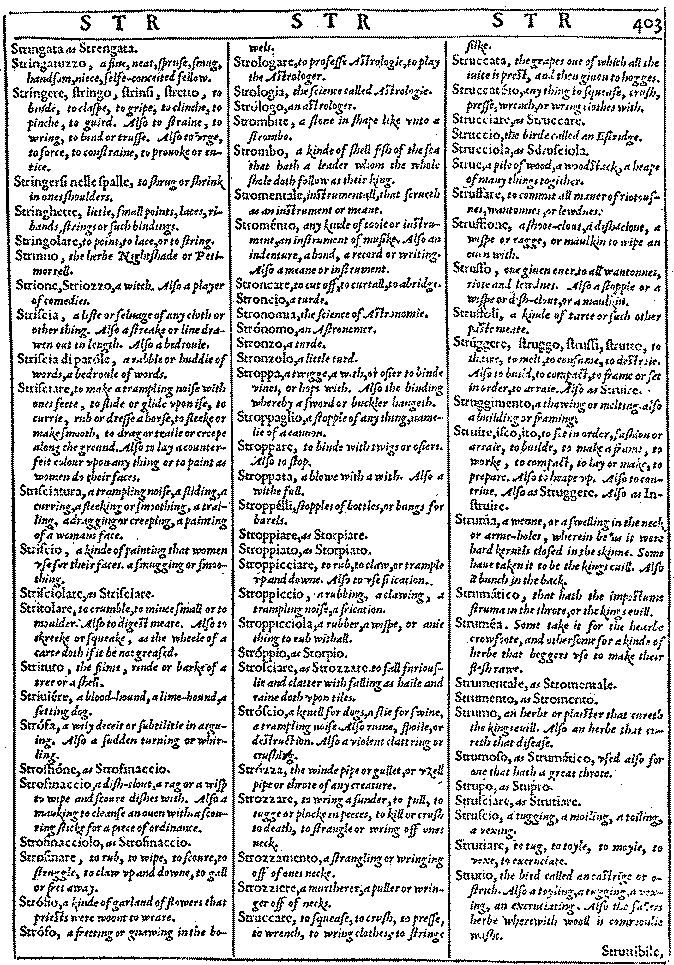 S T R S T R S T R 403
Stringata as Strengata.
Stringatuzzo, a fine, neat, spruse, smug,
handsom, niece, selfe-conceited fellow.
Stringere, stringo, strinsi, stretto, to
binde, to claspe, to gripe, to clinche, to
pinche, to guird. Also to straine, to
wring, to bind or trusse. Also to vrge,
to force, to constraine, to prouoke or en-
tice.
Stringersi nelle spalle, to shrug or shrink
in ones shoulders.
Stringhette, little, small points, laces, ri-
bands, strings or such bindings.
Stringolare, to point, to lace, or to string.
Strinno, the herbe Nightshade or Petti-
morrell.
Strione, Striozzo, a witch. Also a player
of comedies.
Striscia, a liste or seluage of any cloth or
other thing. Also a streake or line draw-
en out in length. Also a bedroule.
Striscia di paróle, a rabble or huddle of
words, a bedroule of words.
Strisciare, to make a trampling noise with
ones feete, to slide or glide vpon ise, to
currie, rub or dresse a horse, to sleeke or
make smooth, to drag or traile or creepe
along the ground. Also to lay a counter-
feit colour vpon any thing or to paint as
women do their faces.
Strisciatura, a trampling noise, a sliding, a
curring, a sleeking or smoothing, a trai-
ling, a dragging or creeping, a painting
of a womans face.
Striscio, a kinde of painting that women
vse for their faces. a smugging or smoo-
thing.
Strisciolare, as Strisciare.
Stritolare, to crumble, to mince small or to
moulder. Also to digest meate. Also to
skreeke or squeake, as the wheele of a
carte doth if it be not greased.
Strituto, the slime, rinde or barke of a
tree or a shell.
Striuiére, a blood-hound, a lime-hound, a
setting dog.
Strófa, a wily deceit or subtilitie in argu-
ing. Also a sudden turning or whir-
ling.
Stroffióne, as Strofinaccio.
Strofinaccio, a dish-clout, a rag or a wisp
to wipe and scoure dishes with. Also a
maukin to cleanse an ouen with. a scou-
ring sticke for a piece of ordinance.
Strofinacciolo, as Strofinaccio.
Strofinare, to rub, to wipe, to scoure, to
struggle, to claw vp and downe, to gall
or fret away.
Strófio, a kinde of garland of flowers that
priests were woont to weare.
Strófo, a fretting or gnawing in the bo-
wels.
Strologare, to professe Astrologie, to play
the Astrologer.
Strologia, the science called Astrologie.
Strólogo, an astrologer.
Strombite, a stone in shape like vnto a
strombo.
Strombo, a kinde of shell fish of the sea
that hath a leader whom the whole
shole doth follow as their king.
Stromentale, instrumentall, that serueth
as an instrument or meane.
Stroménto, any kinde of toole or instru-
ment, an instrument of musike. Also an
indenture, a bond, a record or writing.
Also a meane or instument.
Stroncare, to cut off, to curtall, to abridge.
Stroncio, a turde.
Stronomia, the science of Astronomie.
Strónomo, an Astronomer.
Stronzo, a turde.
Stronzolo, a little turd.
Stroppa, a twigge, a with, or osier to binde
vines, or hops with. Also the binding
whereby a sword or buckler hangeth.
Stroppaglio, a stopple of any thing, name-
lie of a canon.
Stroppare, to binde with twigs or osiers.
Also to stop.
Stroppata, a blowe with a with. Also a
withe full.
Stroppélli, stopples of bottles, or bungs for
barels.
Stroppiare, as Storpiare.
Stroppiato, as Storpiato.
Stroppicciare, to rub, to claw, or trample
vp and downe. Also to vse frication.
Stroppiccio, a rubbing, a clawing, a
trampling noise, a frication.
Stroppicciola, a rubber, a wispe, or anie
thing to rub withall.
Stróppio, as Storpio.
Strosciare, as Strozzare. to fall furious-
lie and clatter with falling as haile and
raine doth vpon tiles.
Stróscio, a kenell for dogs, a stie for swine,
a trampling noise. Also ruine, spoile, or
destruction. Also a violent clattring or
crushing.
Strózza, the winde pipe or gullet, or vzell
pipe or throte of any creature.
Strozzare, to wring a sunder, to pull, to
tugge or plucke in peeces, to kill or crush
to death, to strangle or wring off ones
neck.
Strozzamento, a strangling or wringing
off of ones necke.
Strozziere, a murtherer, a puller or wrin-
ger off of necks.
Struccare, to squease, to crush, to presse,
to wrench, to wring clothes, to stringe
silke.
Struccata, the grapes out of which all the
iuice is prest, and then giuen to hogges.
Struccatóio, any thing to squease, crush,
presse, wrench, or wring clothes with.
Strucciare, as Struccare.
Struccio, the birde called an Estridge.
Strucciola, as Sdrusciola.
Strue, a pile of wood, a wood stack, a heape
of many things together.
Struffare, to commit all maner of riotous-
nes, wantonnes, or lewdnes.
Struffione, a shooe-clout, a dishclout, a
wispe or ragge, or maulkin to wipe an
ouen with.
Struffo, one giuen euer to all wantonnes,
riote and lewdnes. Also a stopple or a
wispe or dish-clout, or a maulkin.
Struffoli, a kinde of tarte or such other
paste meate.
Strúggere, struggo, strussi, strutto, to
thawe, to melt, to consume, to destroie.
Also to build, to compact, to frame or set
in order, to arraie. Also as Struire.
Struggimento, a thawing or melting. also
a building or framing.
Struire, isco, ito, to set in order, fashion or
arraie, to builde, to make a frame, to
worke, to compact, to lay or make, to
prepare. Also to heape vp. Also to con-
triue. Also as Struggere. Also as In-
struire.
Struma, a wenne, or a swelling in the neck
or arme-holes, wherein be as it were
hard kernels closed in the skinne. Some
haue taken it to be the kings euill. Also
a bunch in the back.
Strumático, that hath the impostume
struma in the throte, or the kings euill.
Struméa. Some take it for the hearbe
crowfoote, and othersome for a kinde of
herbe that beggers vse to make their
flesh rawe.
Strumentale, as Stromentale.
Strumento, as Stromento.
Strumo, an herbe or plaister that cureth
the kings euill. Also an herbe that cu-
reth that disease.
Strumoso, as Strumático, vsed also for
one that hath a great throte.
Strupo, as Stupro.
Strusciare, as Strutiare.
Struscio, a tugging, a moiling, a toiling,
a vexing.
Strutiare, to tug, to toyle, to moyle, to
vexe, to excruciate.
Strutio, the bird called an astrige or o-
strich. Also a toyling, a tugging, a vex-
ing, an excruciating. Also the fullers
herbe wherewith wooll is commonlie
washt.
Struttibile,